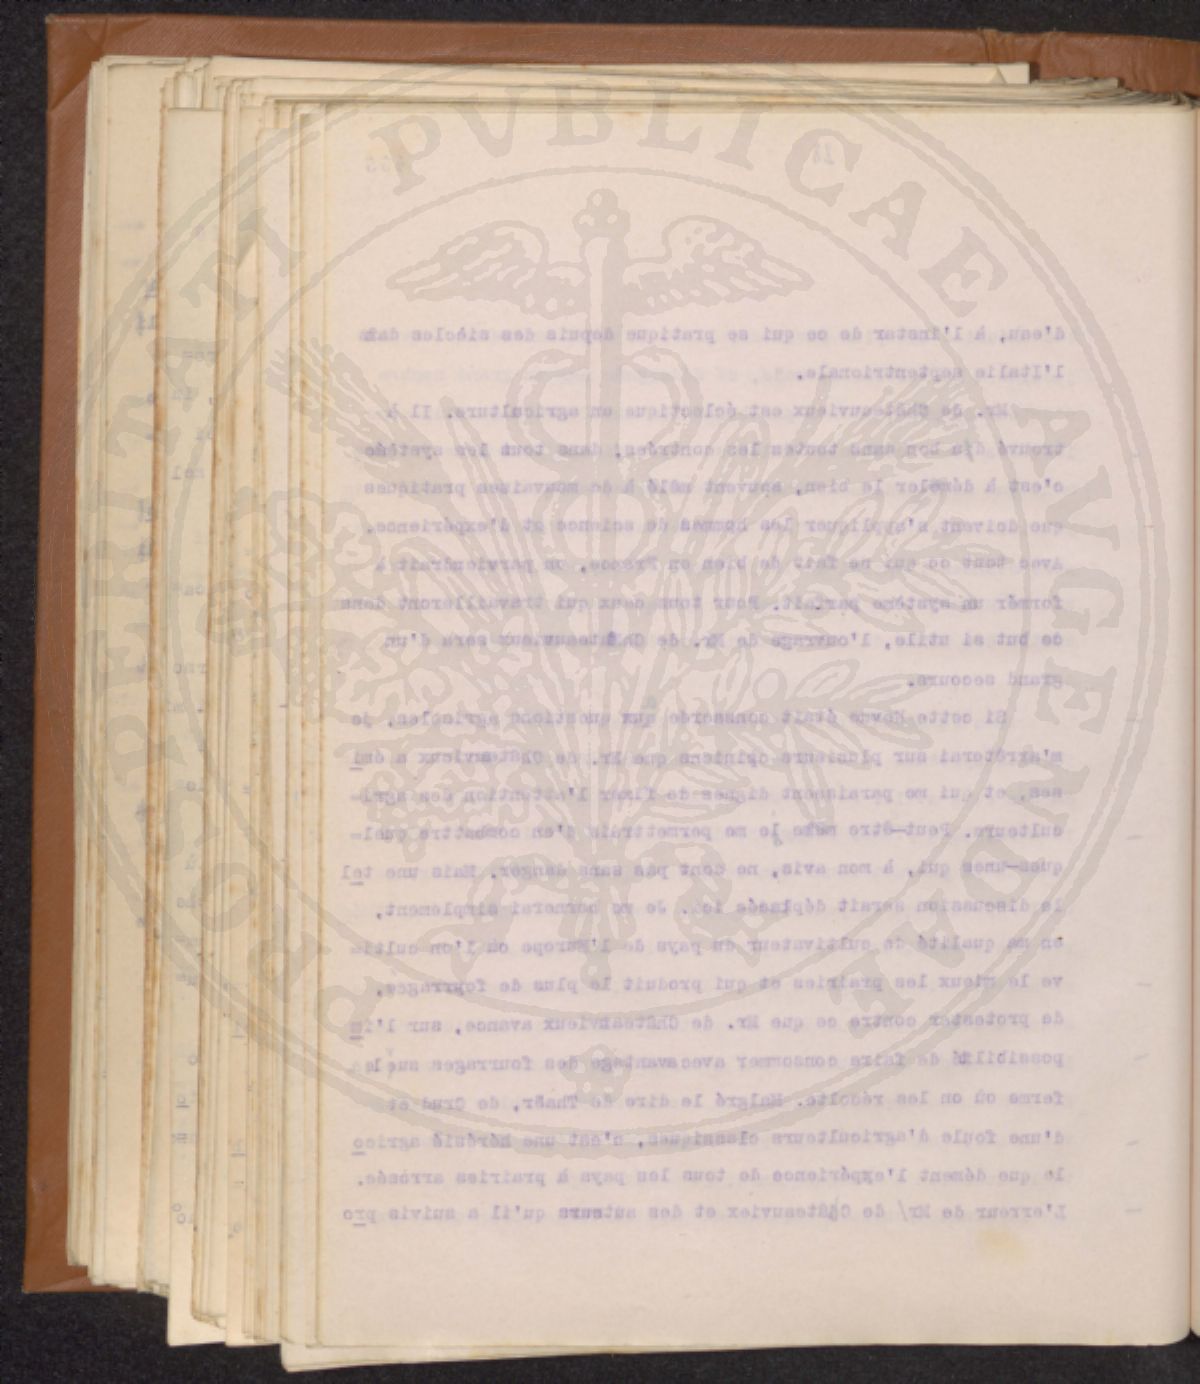 d'eau, à l'instar de ce qui se pratique depuis des siècles dans
l'Italie septentrionale.
Mr. de Châteauvieux est éclectique en agriculture. Il a
trouvé du bon dans toutes les contrées; dans tous les système
c'est à démêler le bien, souvent mêlé à de mauvaises pratiques
que doivent s'appliquer les hommes de science et d'expérience.
Avec tout ce qui se fait de bien en France, on parviendrait à
formér un système parfait. Pour tous ceux qui travailleront dans
de but si utile, l'ouvrage de Mr. de Châteauvieux sera d'un
grand secours.
Si cette Revue était consacrée aux questions agricoles, je
m'arrêterai sur plusieurs opinions que Mr. de Châteauvieux a émi
ses, et qui me paraissent dignes de fixer l'attention des agri-
culteurs. Peut-être même je me permettrais d'en combattre quel-
ques-unes qui, à mon avis, ne sont pas sans danger. Mais une tel
le discussion serait déplacée ici. Je me bornerai simplement,
en ma qualité de cultivateur du pays de l'Europe où l'on culti-
ve le mieux les prairies et qui produit le plus de fourrages,
de protester contre ce que Mr. de Châteauvieux avance, sur l'im
possibilité de faire consommer avec avantage des fourrages sur la
ferme où on les récolte. Malgré le dire de Thaër, de Crud et
d'une foule d'agriculteurs classiques, c'est une hérésie agrico
le que dément l'expérience de tous les pays à prairies arrosées.
L'erreur de Mr/ de Châteauvieux et des auteurs qu'il a suivis pro
PROSPERITATI PVBLICAE AVGENDAE